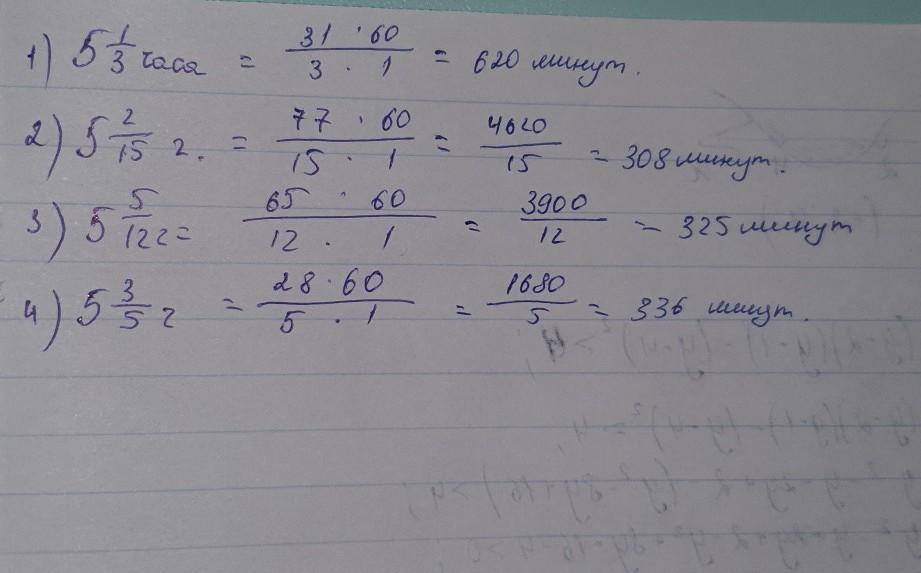 1) 5 1/3 часа = 31 · 60 / 3 · 1 = 620 минут.
2) 5 2/15 г. = 77 · 60 / 15 · 1 = 4620 / 15 = 308 минут.
3) 5 5/12 г = 65 · 60 / 12 · 1 = 3900 / 12 = 325 минут
4) 5 3/5 г = 28 · 60 / 5 · 1 = 1680 / 5 = 336 минут.